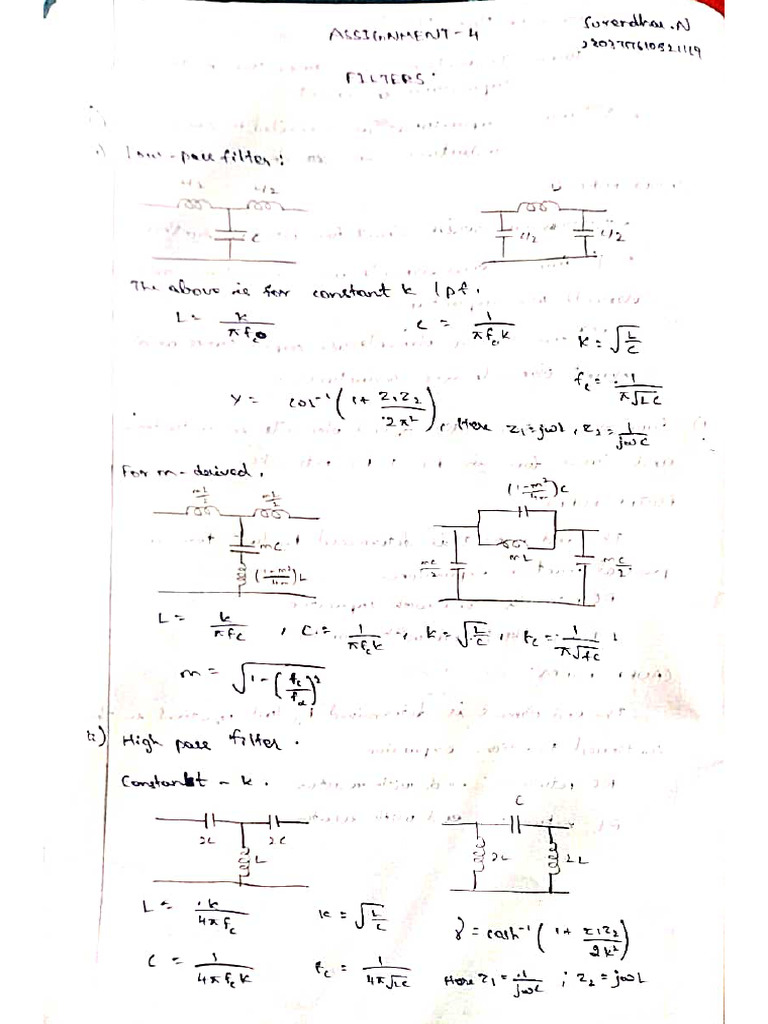 ASSIGNMENT-4
Surendhar.N
FILTERS:
i) Low-pass filter:
L/2 L/2 L
C C/2 C/2
The above is for constant k lpf.
L = k/πf_c C = 1/πf_c k K = √(L/C)
f_c = 1/π√LC
γ = cos⁻¹(1 + Z₁Z₂/2π²), Here Z₁=jωL, Z₂=1/jωC
For m-derived.
mL/2 mL/2 (1-m²/4m)C
mC mL
(1-m²/4m)L mC/2 mC/2
L = k/πf_c , C = 1/πf_c k , k = √(L/C) , f_c = 1/π√fc
m = √(1-(f_c/f_α)²)
ii) High pass filter.
Constant - k.
C
2C 2C
L 2L 2L
L = k/4πf_c k = √(L/C) γ = cosh⁻¹(1 + Z₁Z₂/2k²)
C = 1/4πf_c k f_c = 1/4π√LC Here Z₁ = 1/jωC ; Z₂ = jωL